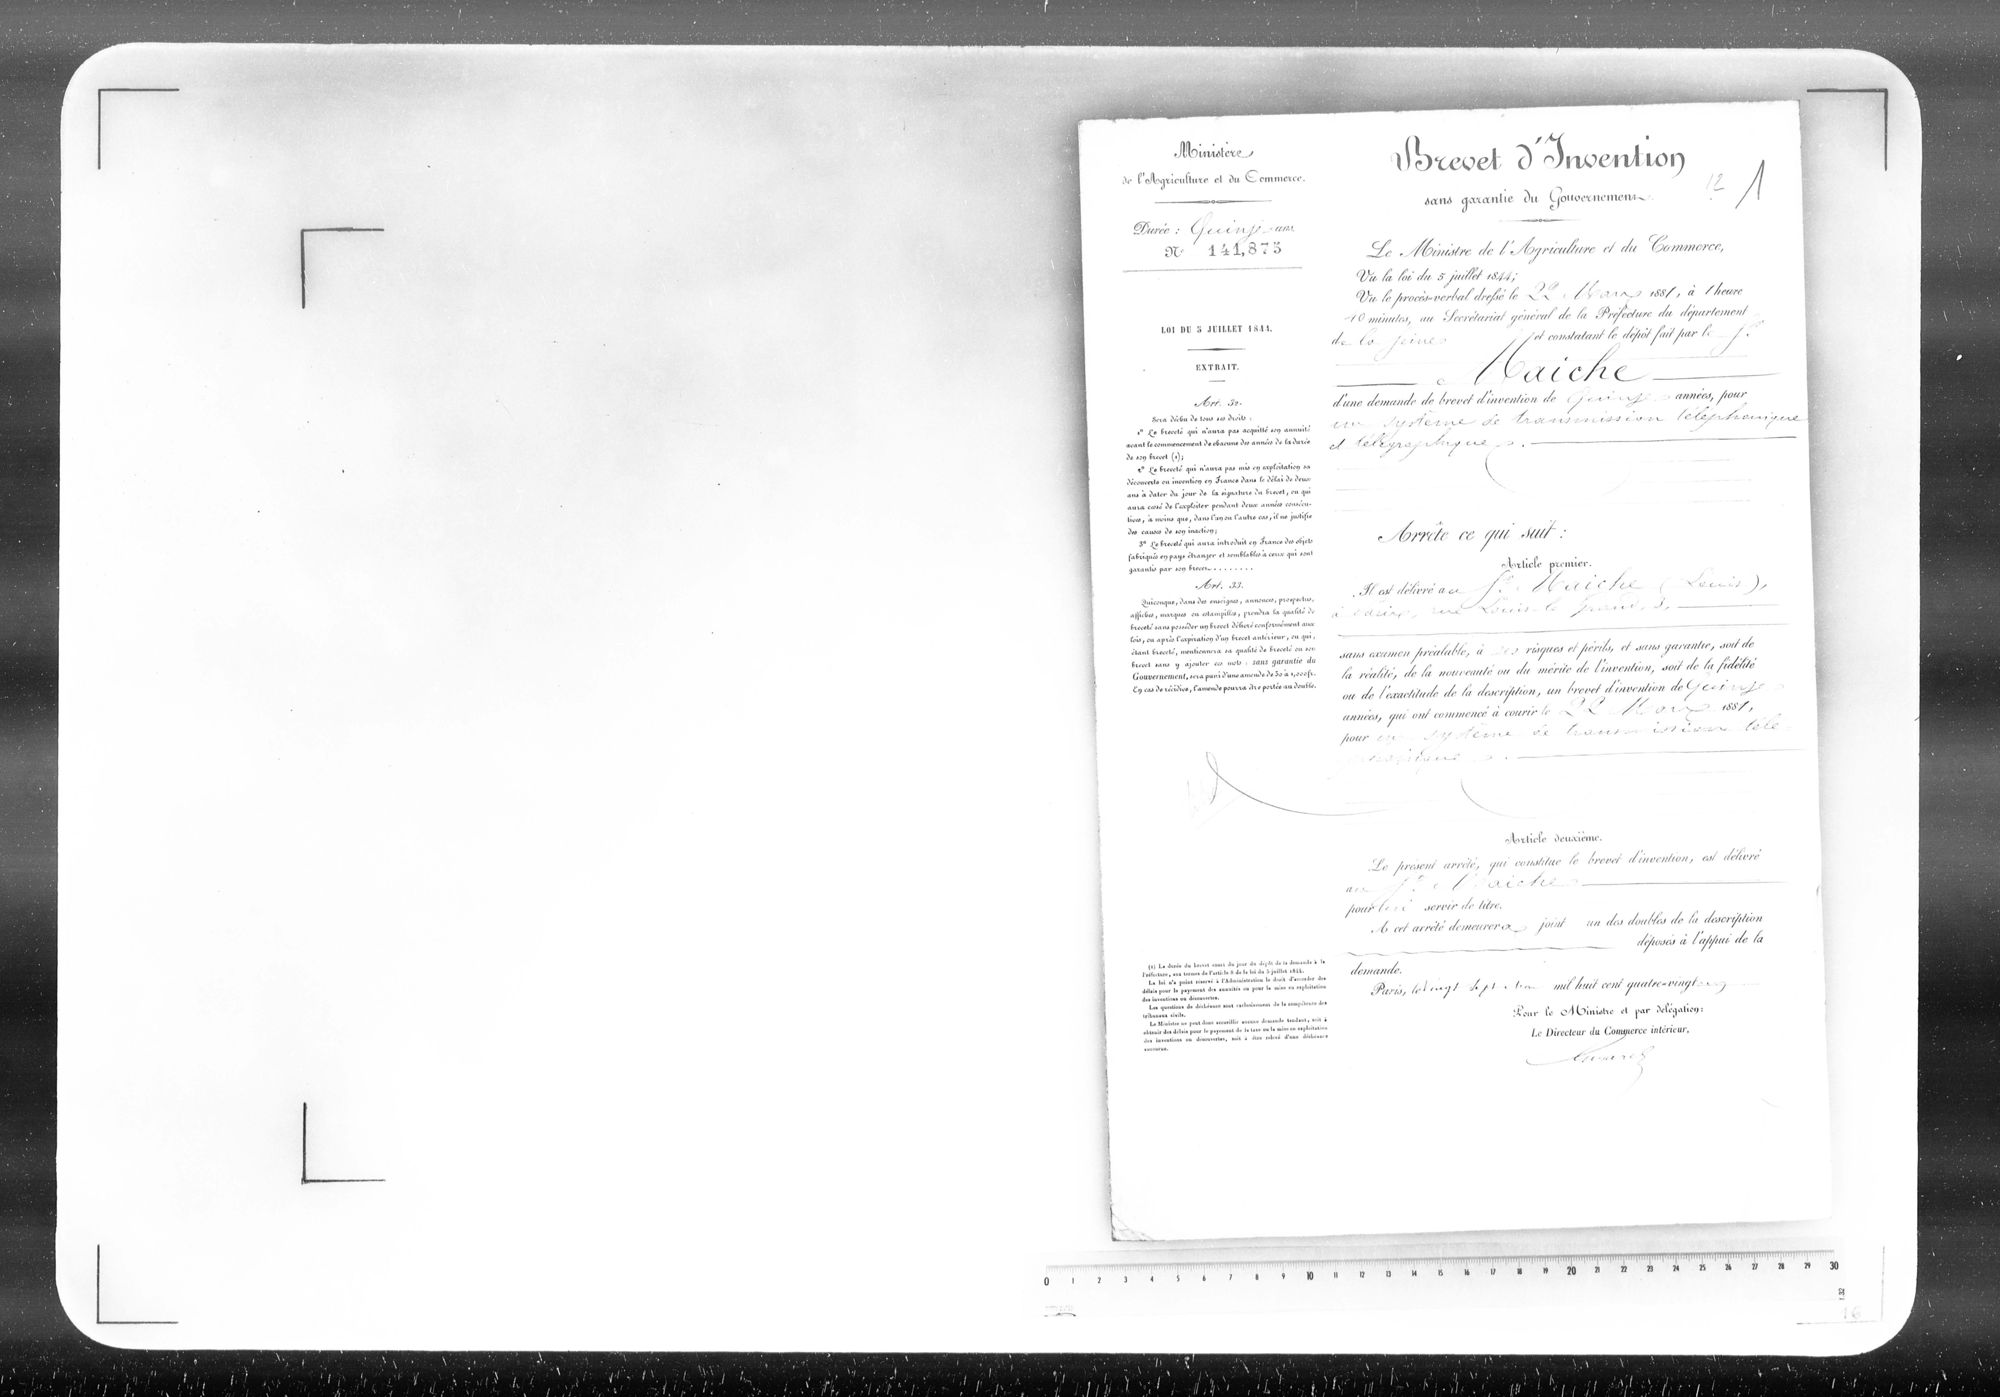 Ministère
de l'Agriculture et du Commerce.
Durée : Quinze ans
N° 141,873
LOI DU 5 JUILLET 1844.
EXTRAIT.
Art. 32.
Sera déchu de tous ses droits :
1° Le breveté qui n'aura pas acquitté son annuité
avant le commencement de chacune des années de la durée
de son brevet (1);
2° Le breveté qui n'aura pas mis en exploitation sa
découverte ou invention en France dans le délai de deux
ans à dater du jour de la signature du brevet, ou qui
aura cessé de l'exploiter pendant deux années consécu-
tives, à moins que, dans l'un ou l'autre cas, il ne justifie
des causes de son inaction;
3° Le breveté qui aura introduit en France des objets
fabriqués en pays étranger et semblables à ceux qui sont
garantis par son brevet........
Art. 33.
Quiconque, dans des enseignes, annonces, prospectus,
affiches, marques ou estampilles, prendra la qualité de
breveté sans posséder un brevet délivré conformément aux
lois, ou après l'expiration d'un brevet antérieur, ou qui,
étant breveté, mentionnera sa qualité de breveté ou son
brevet sans y ajouter ces mots : sans garantie du
Gouvernement, sera puni d'une amende de 50 à 1,000 fr.
En cas de récidive, l'amende pourra être portée au double.
(1) La durée du brevet court du jour du dépôt de la demande à la
Préfecture, aux termes de l'article 8 de la loi du 5 juillet 1844.
La loi n'a point réservé à l'Administration le droit d'accorder des
délais pour le payement des annuités ou pour la mise en exploitation
des inventions ou découvertes.
Les questions de déchéance sont exclusivement de la compétence des
tribunaux civils.
Le Ministre ne peut donc accueillir aucune demande tendant, soit à
obtenir des délais pour le payement de la taxe ou la mise en exploitation
des inventions ou découvertes, soit à être relevé d'une déchéance
encourue.
Brevet d'Invention
sans garantie du Gouvernement.
12 1
Le Ministre de l'Agriculture et du Commerce,
Vu la loi du 5 juillet 1844;
Vu le procès-verbal dressé le 22 Mars 1881, à 1 heure
40 minutes, au Secrétariat général de la Préfecture du département
de la Seine et constatant le dépôt fait par le Sr
Maiche
d'une demande de brevet d'invention de Quinze années, pour
un système de transmission téléphonique
et télégraphique.
Arrête ce qui suit :
Article premier.
Il est délivré au Sr Maiche (Louis),
à Paris, rue Louis-le-Grand, 3,
sans examen préalable, à ses risques et périls, et sans garantie, soit de
la réalité, de la nouveauté ou du mérite de l'invention, soit de la fidélité
ou de l'exactitude de la description, un brevet d'invention de Quinze
années, qui ont commencé à courir le 22 Mars 1881,
pour un système de transmission télé-
Article deuxième.
Le présent arrêté, qui constitue le brevet d'invention, est délivré
au Sr Maiche
pour lui servir de titre.
A cet arrêté demeurera joint un des doubles de la description
déposés à l'appui de la
demande.
Paris, le vingt sept mil huit cent quatre-vingt-un
Pour le Ministre et par délégation:
Le Directeur du Commerce intérieur,
0 1 2 3 4 5 6 7 8 9 10 11 12 13 14 15 16 17 18 19 20 21 22 23 24 25 26 27 28 29 30
16